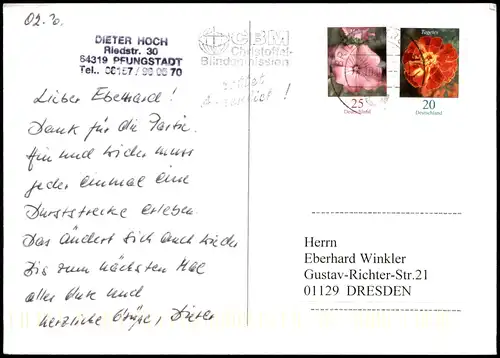 02. 
DIETER HOCH
Riedstr. 30
64319 PFUNGSTADT
Tel.. 06157/
CBM
Christoffel-
Blindenmission
Tagetes
25
Deutschland
20
Deutschland
Lieber Eberhard!
Dank für die Partie.
Hin und wieder muss
jeder einmal eine
Durststrecke erleben.
Das ändert sich auch wieder
Bis zum nächsten Mal
alles Gute und
herzliche Grüße, Dieter
Herrn
Eberhard Winkler
Gustav-Richter-Str.21
01129 DRESDEN